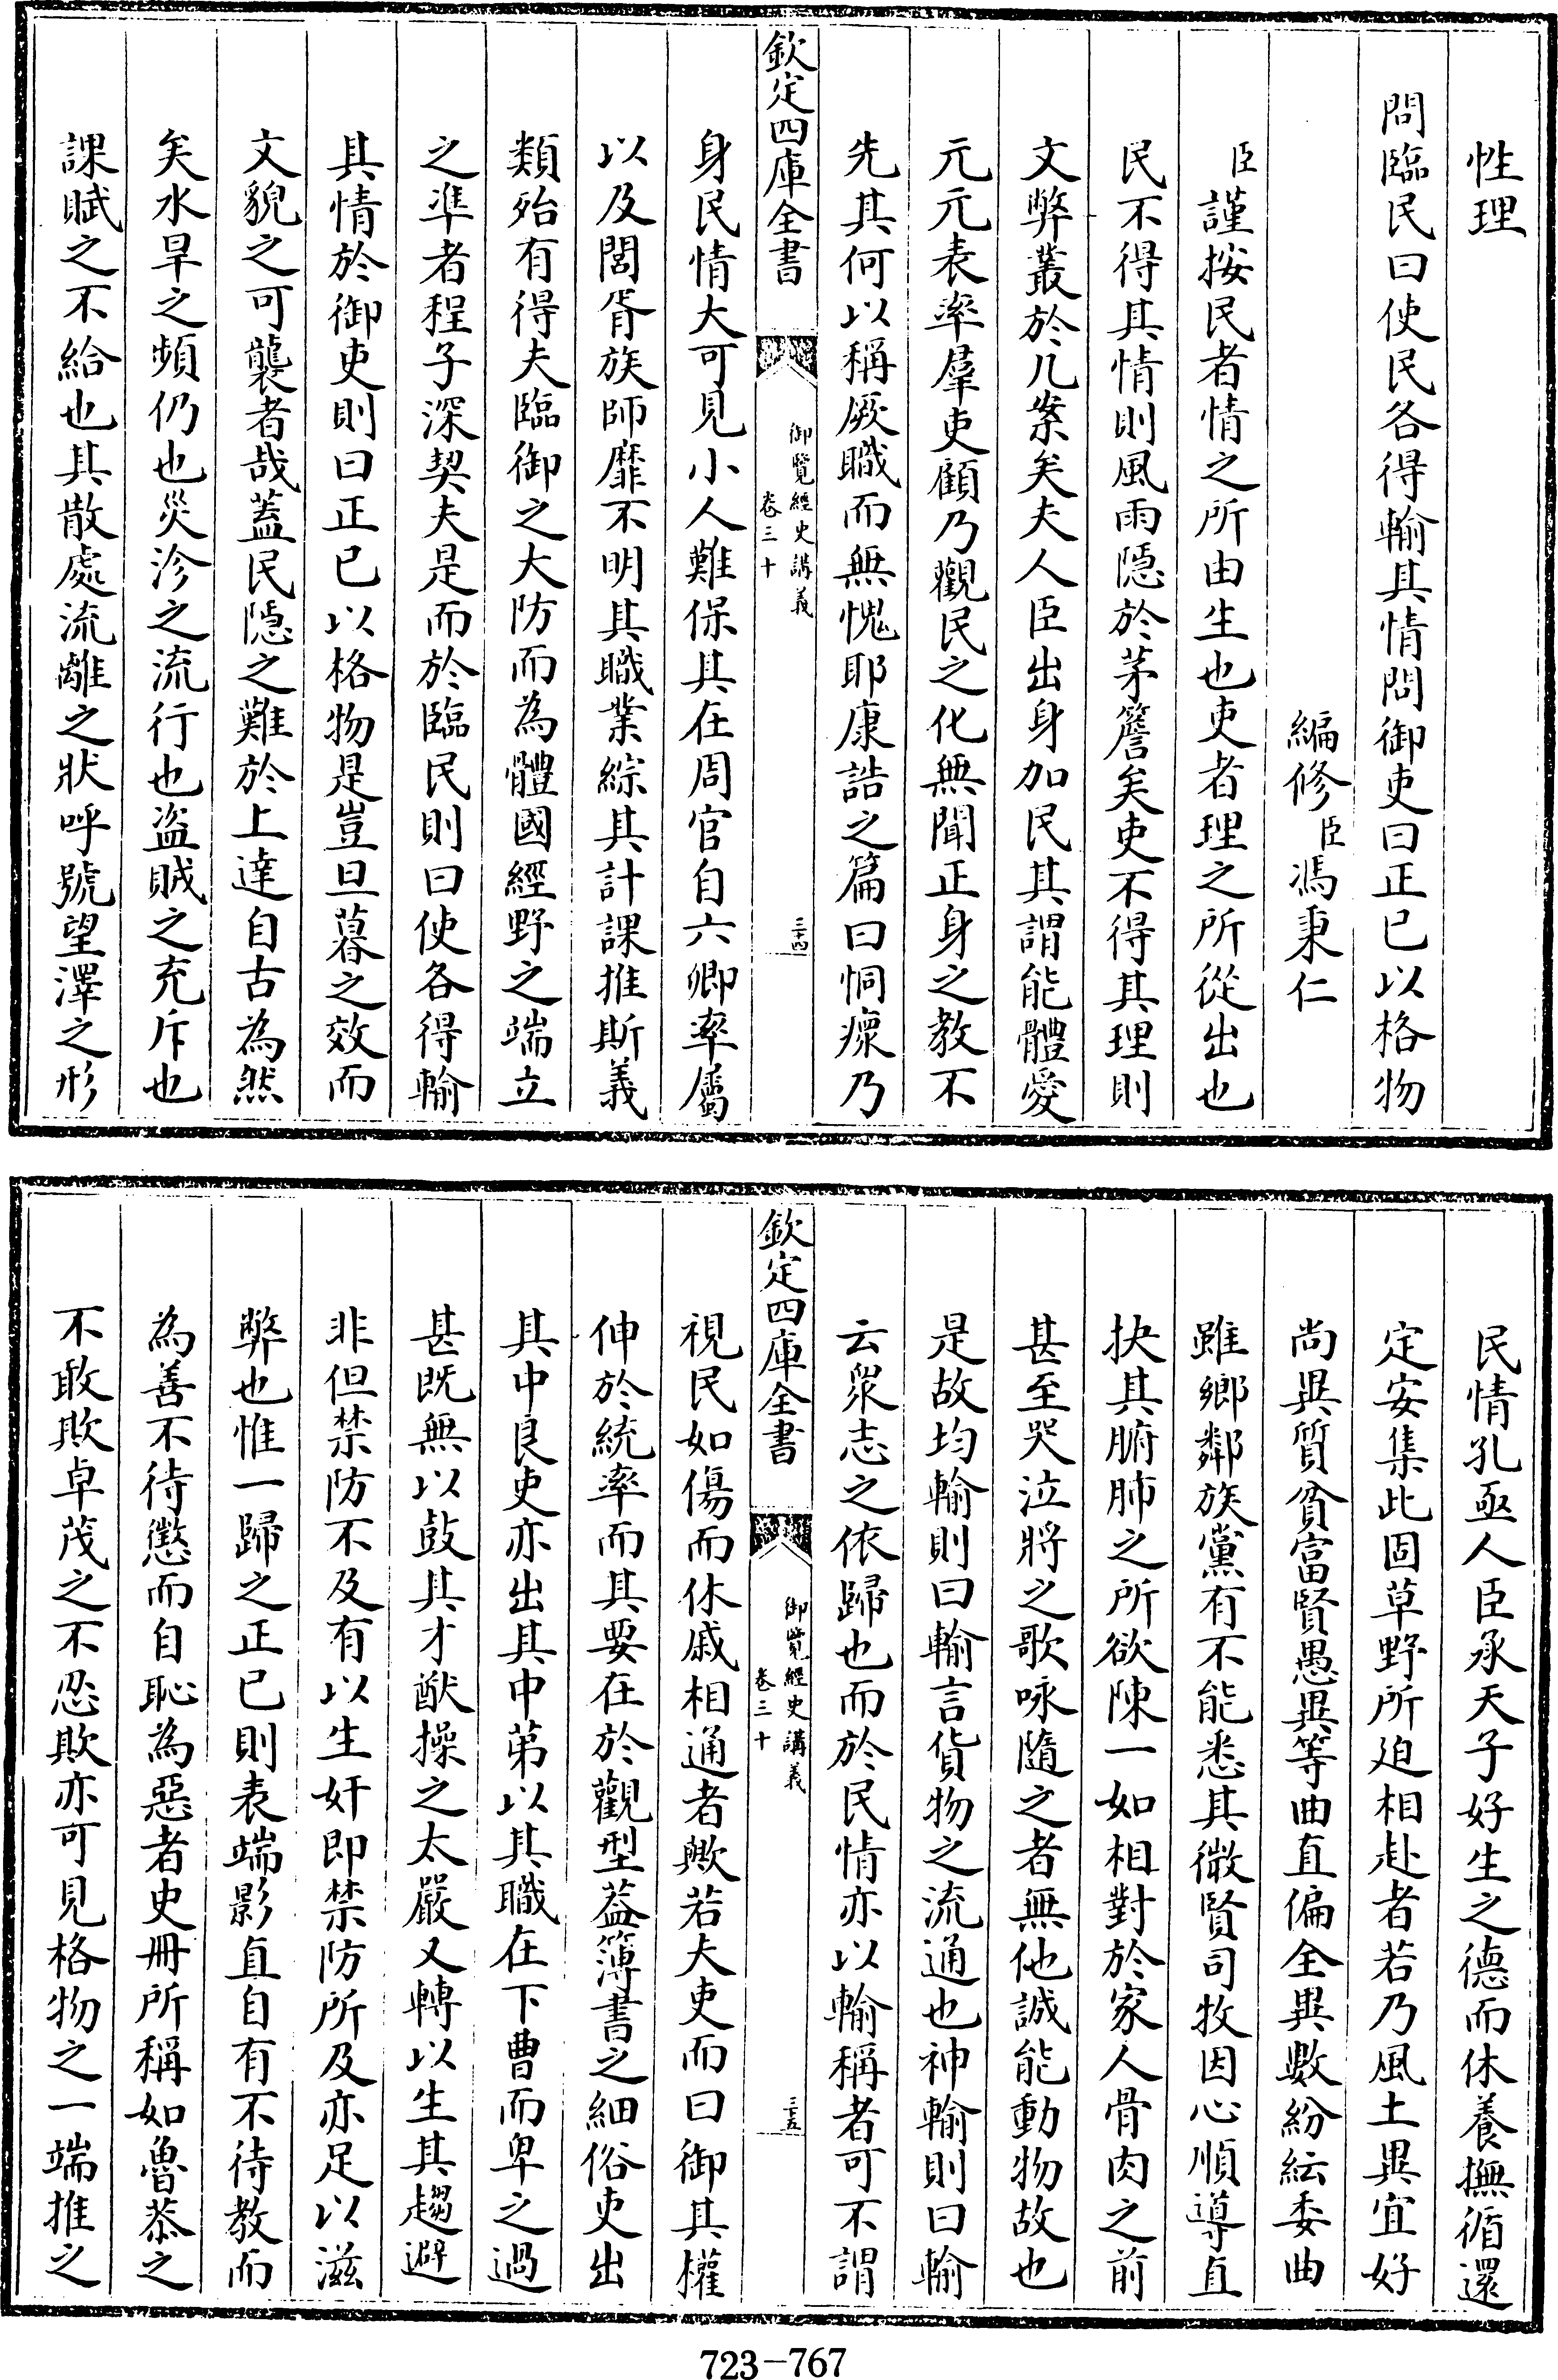 性理
問臨民曰使民各得輸其情問御吏曰正已以格物
編修臣馮秉仁
臣謹按民者情之所由生也吏者理之所從出也
民不得其情則風雨隱於茅簷矣吏不得其理則
文弊叢於几案矣夫人臣出身加民其謂能體愛
元元表率羣吏顧乃觀民之化無聞正身之教不
先其何以稱厥職而無愧耶康誥之篇曰恫瘝乃
欽定四庫全書
御覽經史講義
卷三十
三十四
身民情大可見小人難保其在周官自六卿率屬
以及閭胥族師靡不明其職業綜其計課推斯義
類殆有得夫臨御之大防而為體國經野之端立
之準者程子深契夫是而於臨民則曰使各得輸
其情於御吏則曰正已以格物是豈旦暮之效而
文貌之可襲者哉蓋民隱之難於上達自古為然
矣水旱之頻仍也災沴之流行也盜賊之充斥也
課賦之不給也其散處流離之狀呼號望澤之形
民情孔亟人臣承天子好生之德而休養撫循還
定安集此固草野所迫相赴者若乃風土異宜好
尚異質貧富賢愚異等曲直偏全異數紛紜委曲
雖鄉鄰族黨有不能悉其微賢司牧因心順導直
抉其腑肺之所欲陳一如相對於家人骨肉之前
甚至哭泣將之歌咏隨之者無他誠能動物故也
是故均輸則曰輸言貨物之流通也神輸則曰輸
云衆志之依歸也而於民情亦以輸稱者可不謂
欽定四庫全書
御覽經史講義
卷三十
三十五
視民如傷而休戚相通者歟若夫吏而曰御其權
伸於統率而其要在於觀型葢簿書之細俗吏出
其中良吏亦出其中第以其職在下曹而卑之過
甚既無以鼓其才猷操之太嚴又轉以生其趨避
非但禁防不及有以生奸即禁防所及亦足以滋
弊也惟一歸之正已則表端影直自有不待教而
為善不待懲而自恥為惡者史冊所稱如魯恭之
不敢欺卓茂之不忍欺亦可見格物之一端推之
723-767